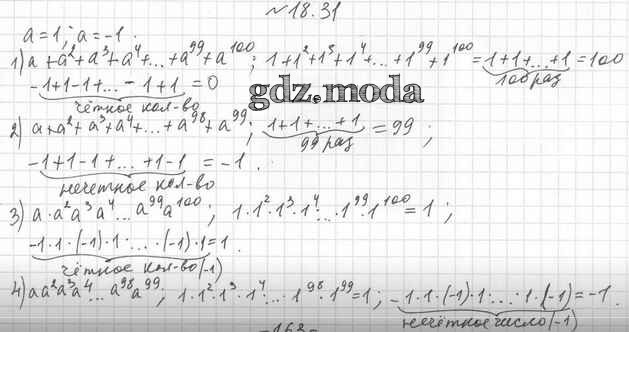 №18.31
a=1; a=-1.
1) a+a²+a³+a⁴+...+a⁹⁹+a¹⁰⁰; 1+1²+1³+1⁴+...+1⁹⁹+1¹⁰⁰=1+1+...+1=100
100 раз
-1+1-1+...-1+1=0
чётное кол-во
gdz.moda
2) a+a²+a³+a⁴+...+a⁹⁸+a⁹⁹; 1+1+...+1=99;
99 раз
-1+1-1+...+1-1=-1.
нечетное кол-во
3) a·a²a³a⁴...a⁹⁹a¹⁰⁰; 1·1²·1³·1⁴·...·1⁹⁹·1¹⁰⁰=1;
-1·1·(-1)·1·...·(-1)·1=1.
чётное кол-во(-1)
4) aa²a³a⁴...a⁹⁸a⁹⁹; 1·1²·1³·1⁴·...·1⁹⁸·1⁹⁹=1; -1·1·(-1)·1·...·1·(-1)=-1.
нечётное число(-1)
-163-